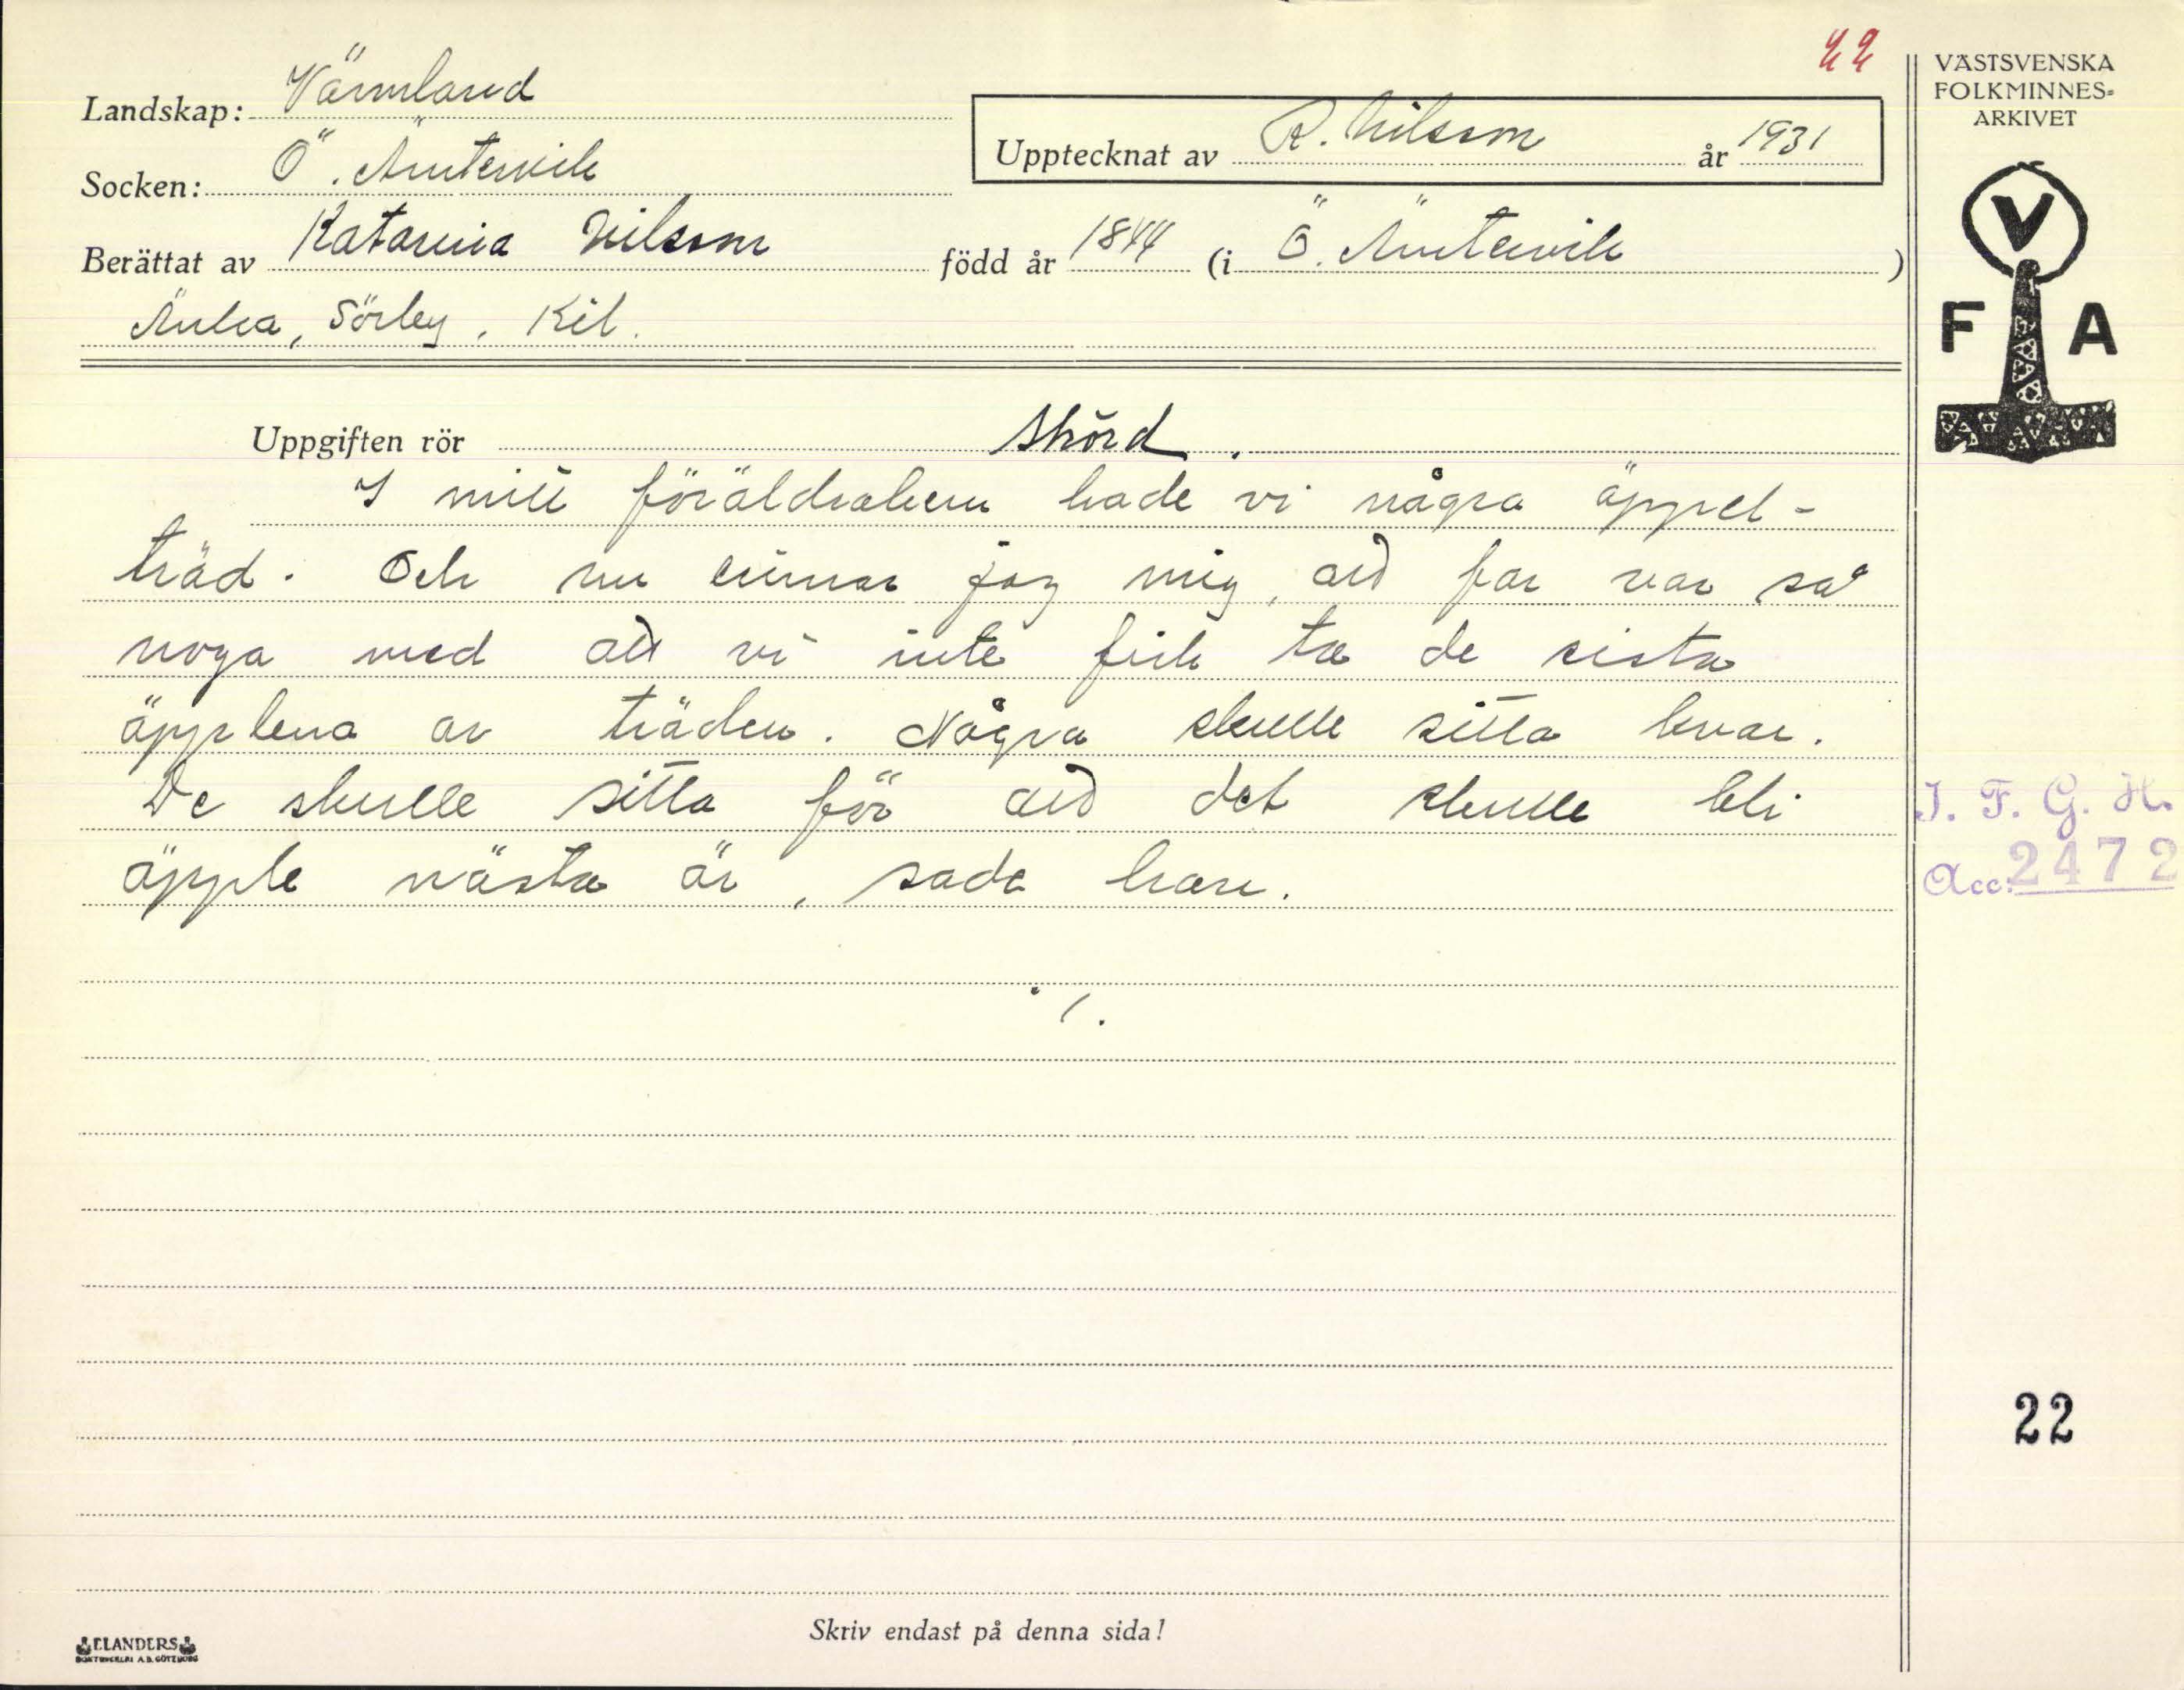 22
VÄSTSVENSKA
FOLKMINNES-
ARKIVET
Landskap: Värmland
Upptecknat av R. Nilsson år 1931
Socken: Ö. Ämtervik
Berättat av Katarina Nilsson född år 1844 (i Ö. Ämtervik)
Änka, Sörby, Kil.
V
F A
Uppgiften rör Skörd.
I mitt föräldrahem hade vi några äppel-
träd. Och nu minnes jag mig, att far var så
noga med att vi inte fick ta de sista
äpplena av träden. Några skulle sitta kvar.
De skulle sitta för att det skulle bli
äpple nästa år, sade han.
./.
I. F. G. H.
Acc. 2472
22
Skriv endast på denna sida!
ELANDERS
BOKTRYCKERI A.B. GÖTEBORG